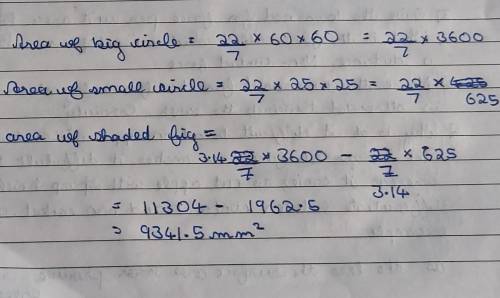 Area of big circle = 22/7 × 60 × 60 = 22/7 × 3600
Area of small circle = 22/7 × 25 × 25 = 22/7 × 625
area of shaded fig =
3.14 × 3600 − 22/7 × 625
3.14
= 11304 - 1962.5
= 9341.5 mm²